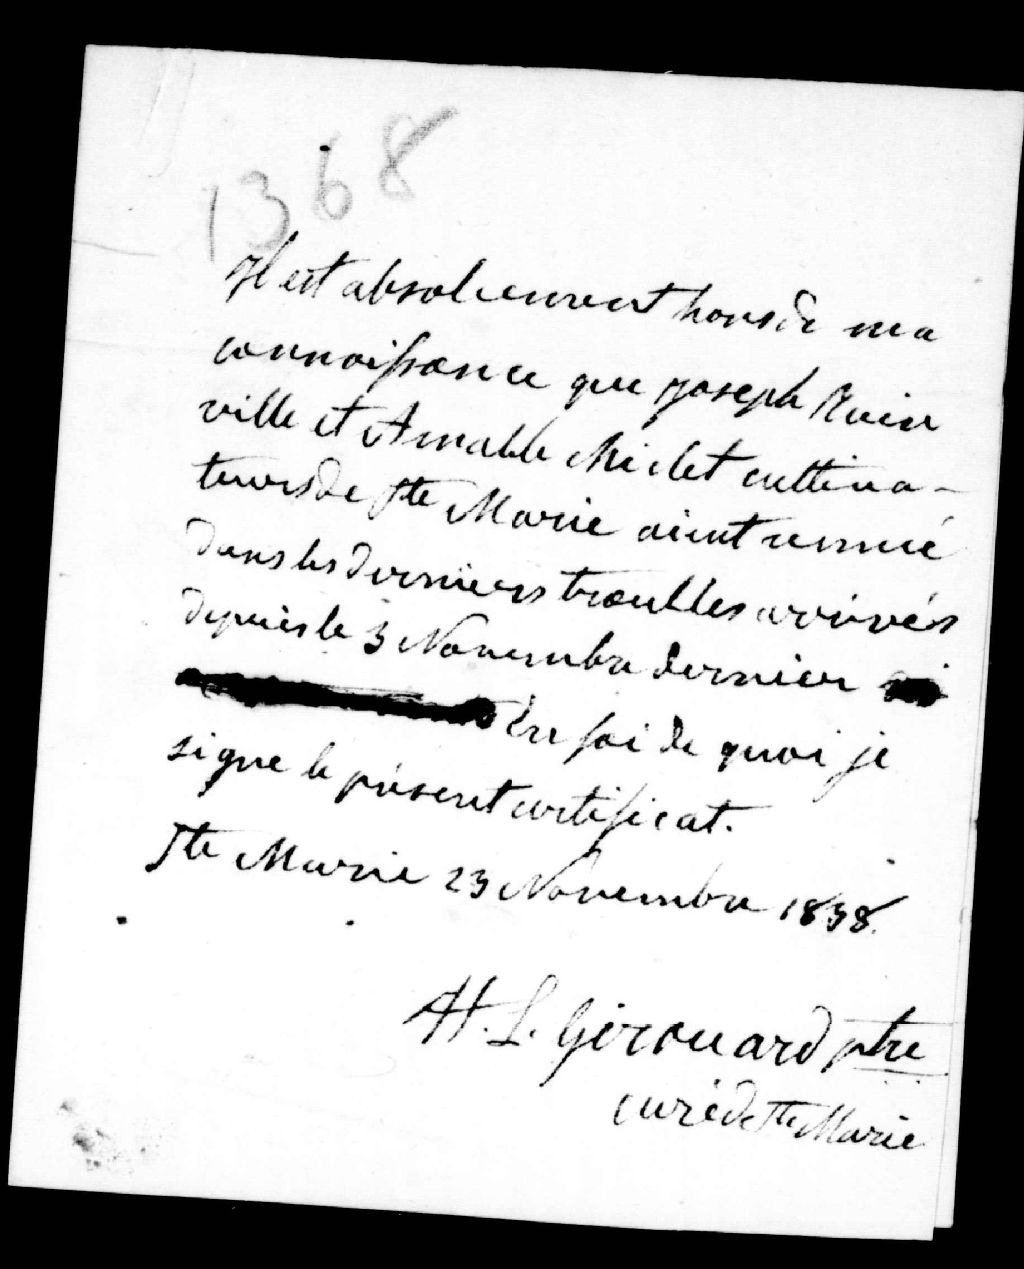 1368
Il est absolument hors de ma
connoissance que Joseph Rain
ville et Amable Michet cultiva-
teurs de Ste Marie aient remué
dans les derniers troubles arrivés
depuis le 3 Novembre dernier
En foi de quoi je
signe le présent certificat.
Ste Marie 23 Novembre 1838.
H. L. Girouard ptre
curé de Ste Marie